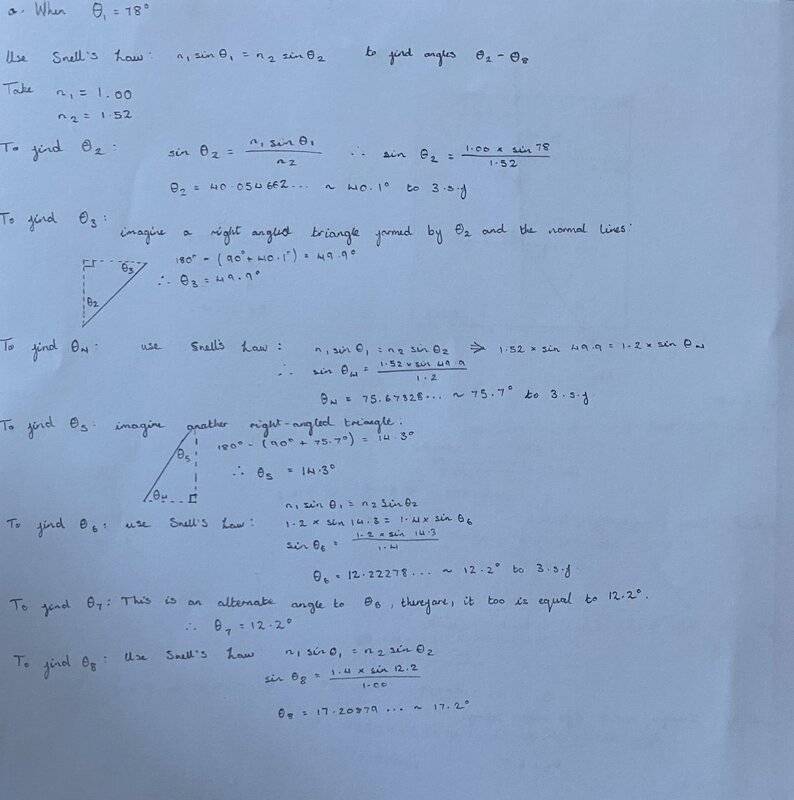 a. When θ₁ = 78°
Use Snell's Law: n₁ sin θ₁ = n₂ sin θ₂ to find angles θ₂ - θ₈
Take n₁ = 1.00
n₂ = 1.52
To find θ₂: sin θ₂ = n₁ sin θ₁ / n₂ ∴ sin θ₂ = 1.00 × sin 78 / 1.52
θ₂ = 40.054662... ~ 40.1° to 3.s.f
To find θ₃:
imagine a right angled triangle formed by θ₂ and the normal lines:
180° - (90° + 40.1°) = 49.9°
∴ θ₃ = 49.9°
θ₃
θ₂
To find θ₄: use Snell's Law: n₁ sin θ₁ = n₂ sin θ₂ ⇒ 1.52 × sin 49.9 = 1.2 × sin θ₄
∴ sin θ₄ = 1.52 × sin 49.9 / 1.2
θ₄ = 75.67328... ~ 75.7° to 3.s.f
To find θ₅: imagine another right-angled triangle:
180° - (90° + 75.7°) = 14.3°
θ₅
∴ θ₅ = 14.3°
θ₄
n₁ sin θ₁ = n₂ sin θ₂
To find θ₆: use Snell's Law: 1.2 × sin 14.3 = 1.4 × sin θ₆
sin θ₆ = 1.2 × sin 14.3 / 1.4
θ₆ = 12.22278... ~ 12.2° to 3.s.f
To find θ₇: This is an alternate angle to θ₆, therefore, it too is equal to 12.2°.
∴ θ₇ = 12.2°
To find θ₈: Use Snell's Law n₁ sin θ₁ = n₂ sin θ₂
sin θ₈ = 1.4 × sin 12.2 / 1.00
θ₈ = 17.20879... ~ 17.2°